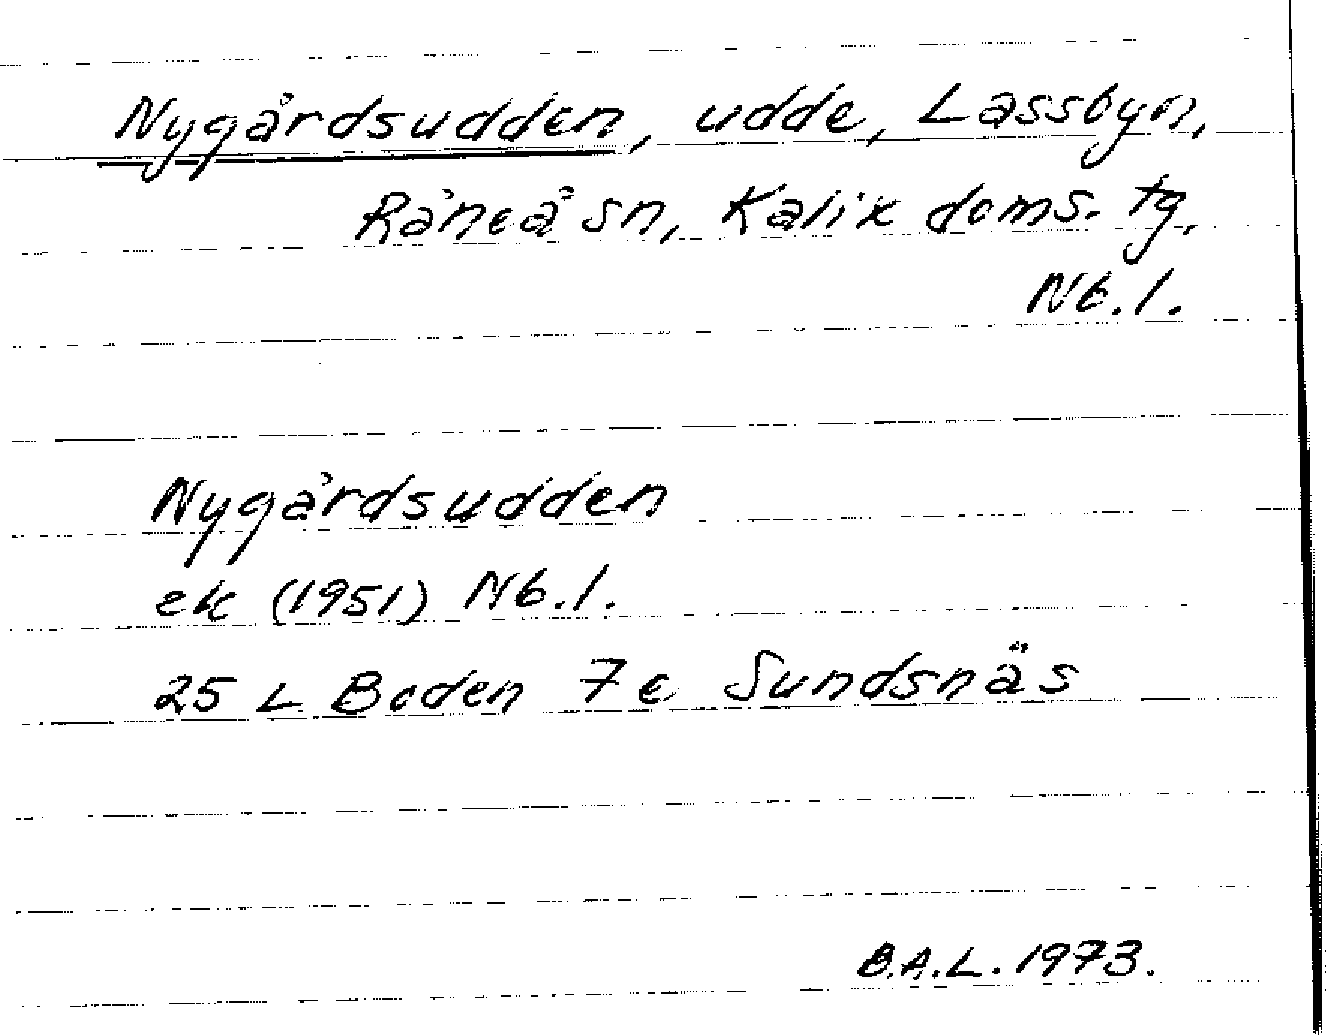 Nygårdsudden, udde, Lassbyn,
Råneå sn, Kalix doms. tg,
Nb.l.
Nygårdsudden
ek (1951) Nb.l.
25 L Boden 7 e Sundsnäs
B.A.L. 1973.